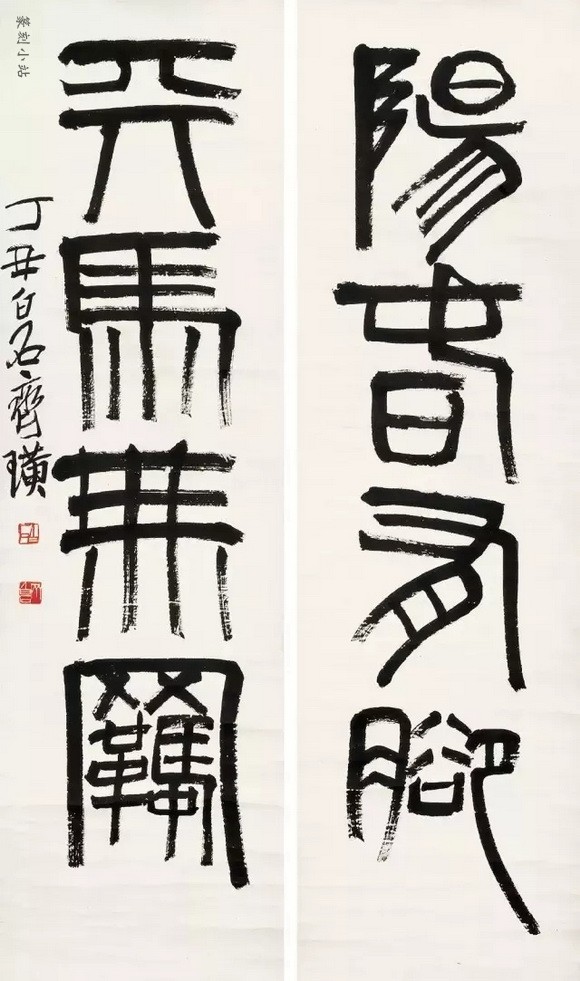 陽春有腳
天馬無羈
丁丑白石齊璜
篆刻小站